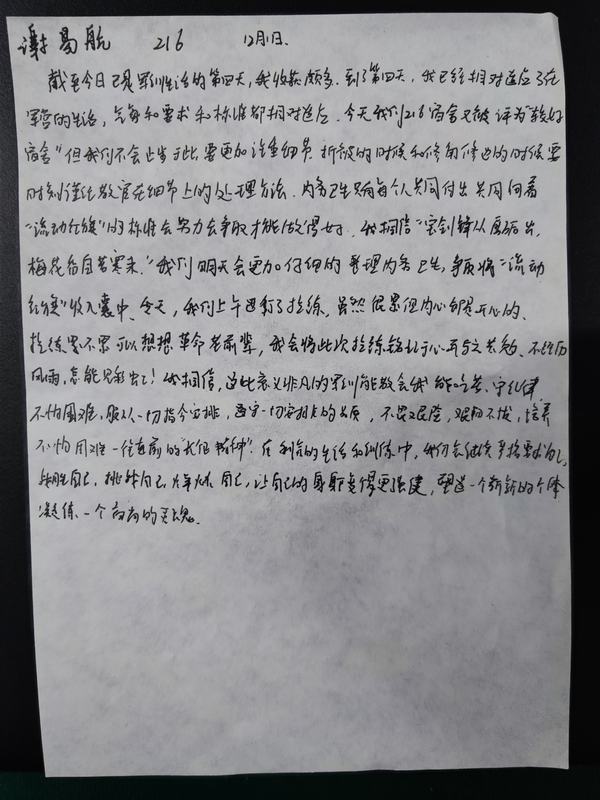 谢易航 216 12月1日.
截至今日已是军训生活的第四天,我收获颇多.到了第四天,我已经相对适应了在
军营的生活,各每和要求和标准都相对适应.今天我们216宿舍又被评为“较好
宿舍”但我们不会止步于此,要更加注重细节.折被的时候和修角修边的时候要
时刻谨记教官在细节上的处理方法.内务卫生只有每个人共同付出共同向着
“流动红旗”的标准去努力去争取才能做得好.我相信“宝剑锋从磨砺出,
梅花香自苦寒来.”我们明天会更加仔细的整理内务卫生,争取将“流动
红旗”收入囊中.今天,我们上午进行了拉练,虽然很累但内心却是开心的.
拉练累不累可以想想革命老前辈,我会将此次拉练铭记于心并与之共勉.不经历
风雨,怎能见彩虹!我相信,这此意义非凡的军训能教会我能吃苦、守纪律
不怕困难,服从一切指令安排,遵守一切安排的品质,不畏艰险,艰韧不拔,培养
不怕困难一往直前的“长征精神”!在剩余的生活和训练中,我仍会继续严格要求自己,
战胜自己,挑战自己,让自己的身躯变得更强健,塑造一个崭新的个体
凝练一个高尚的灵魂.